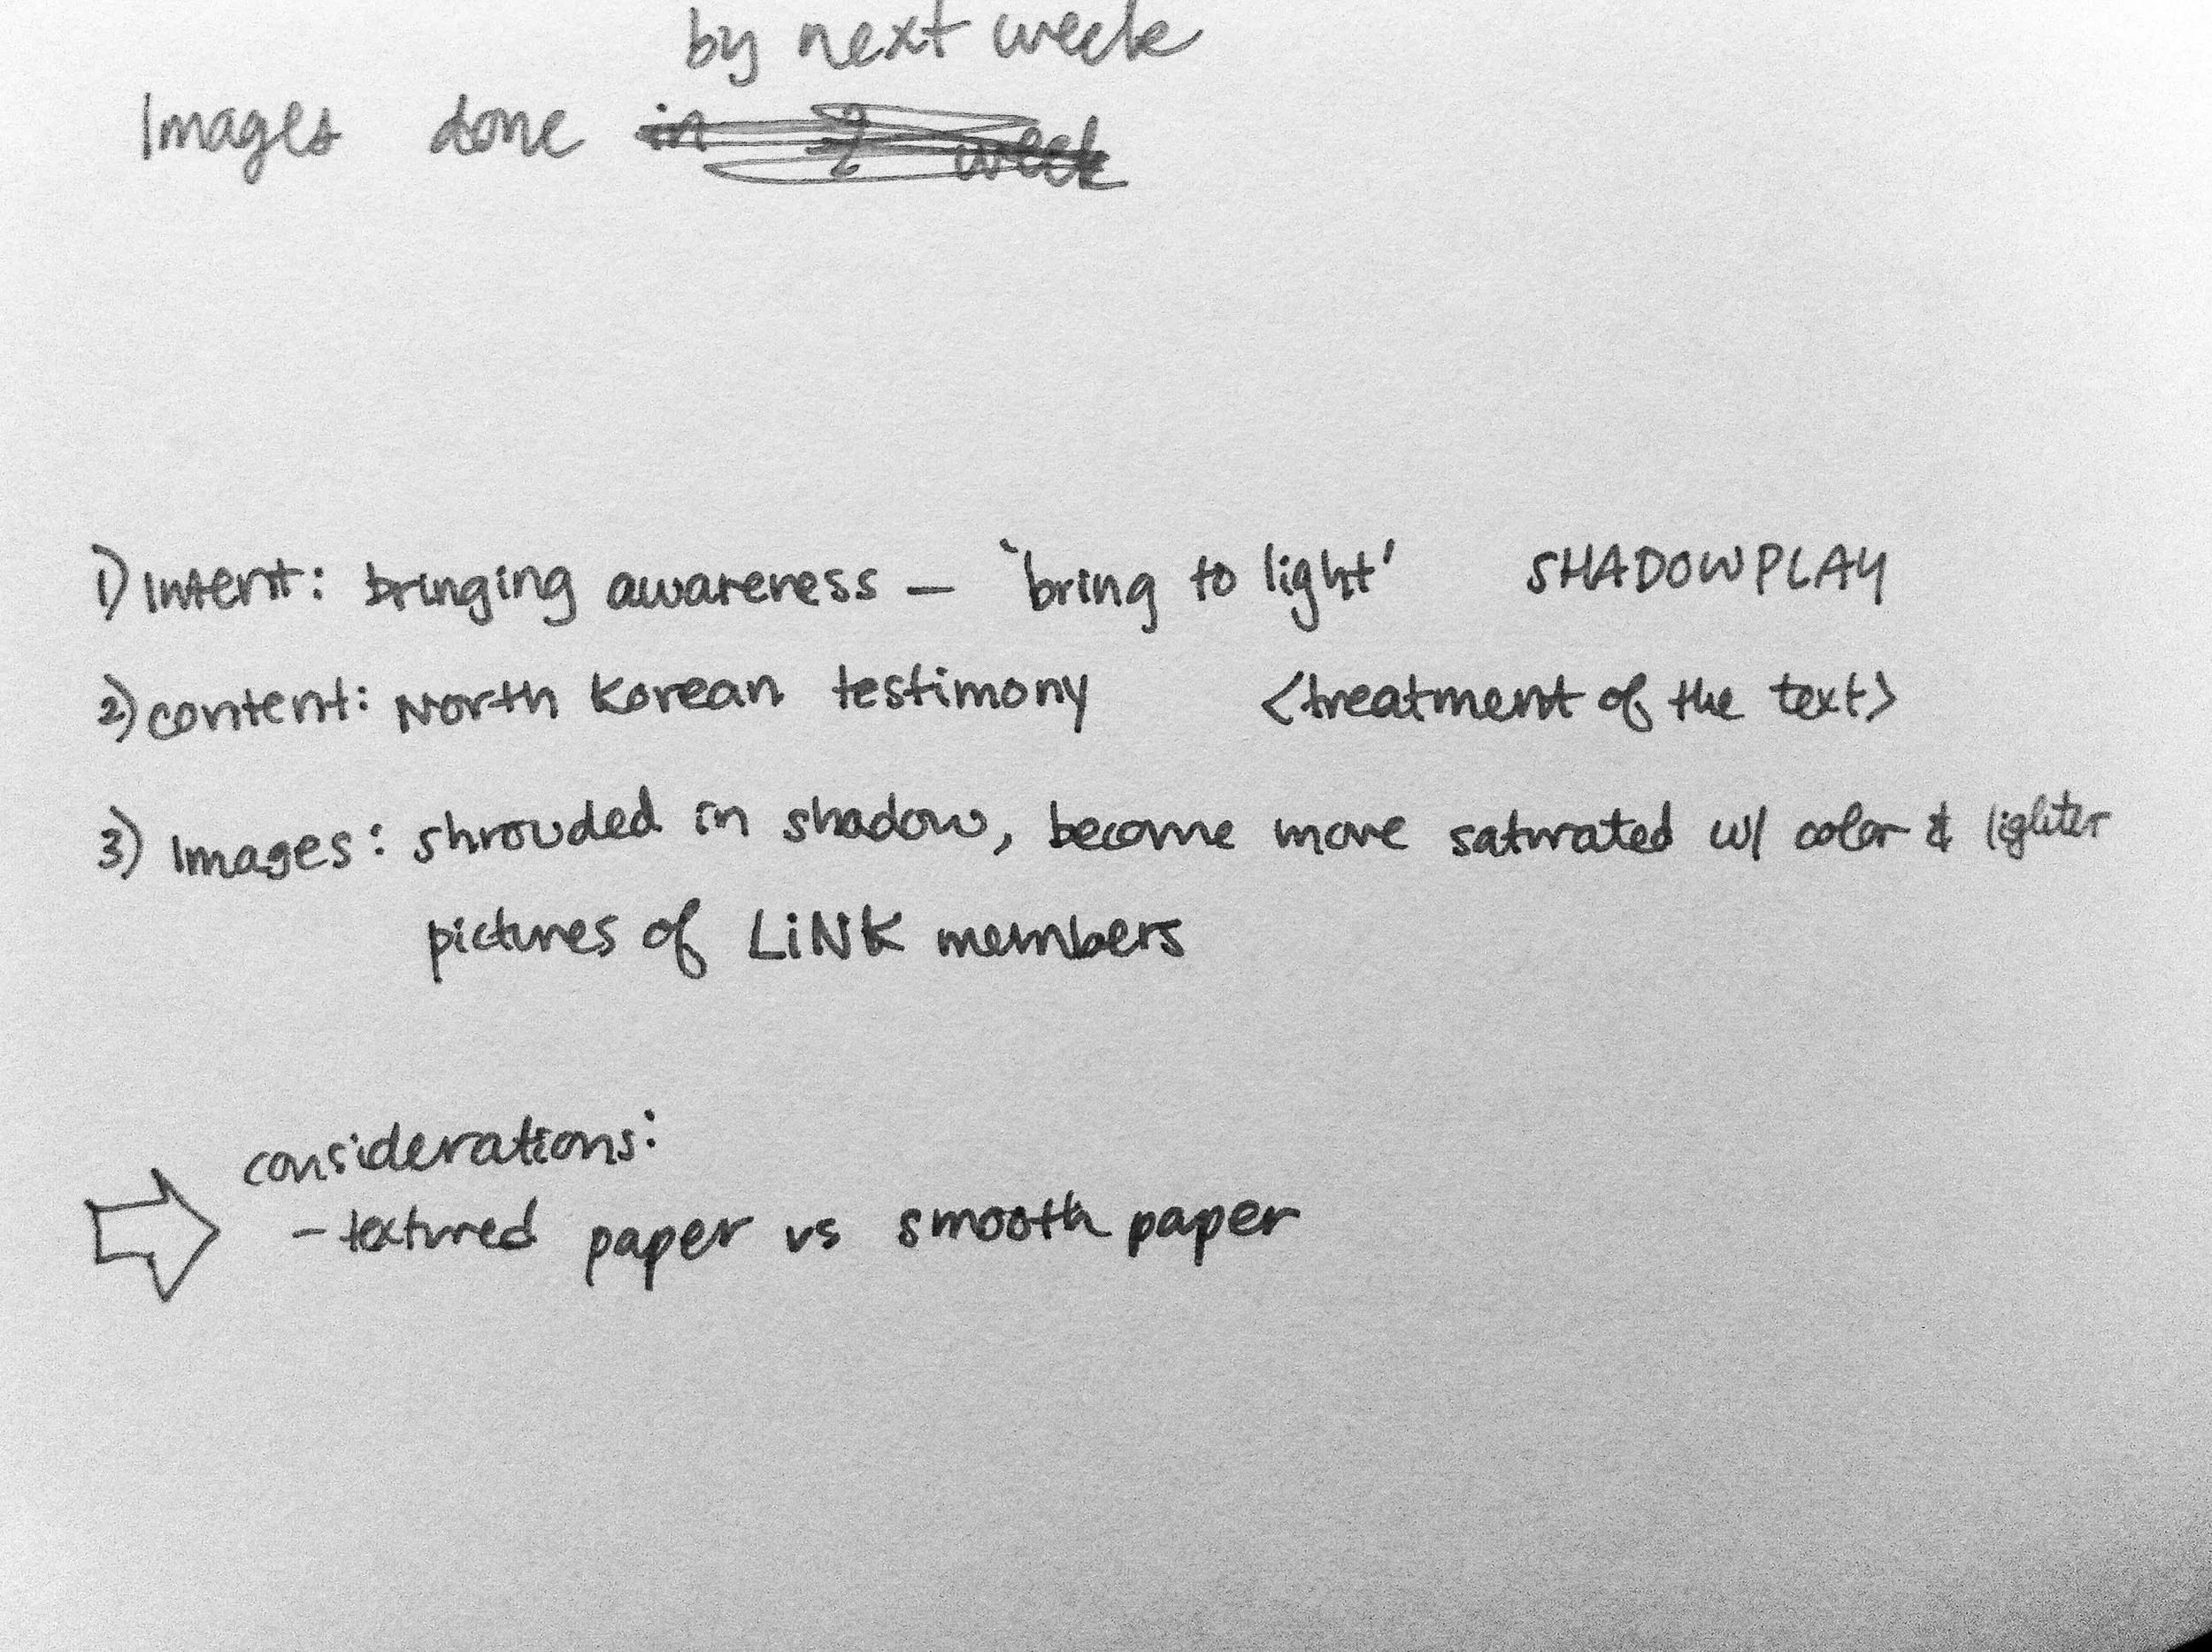 by next week
Images done in 2 week
1) Intent: bringing awareness — 'bring to light' SHADOWPLAY
2) content: North Korean testimony <treatment of the text>
3) Images: shrouded in shadow, become more saturated w/ color & lighter
pictures of LiNK members
considerations:
- textured paper vs smooth paper